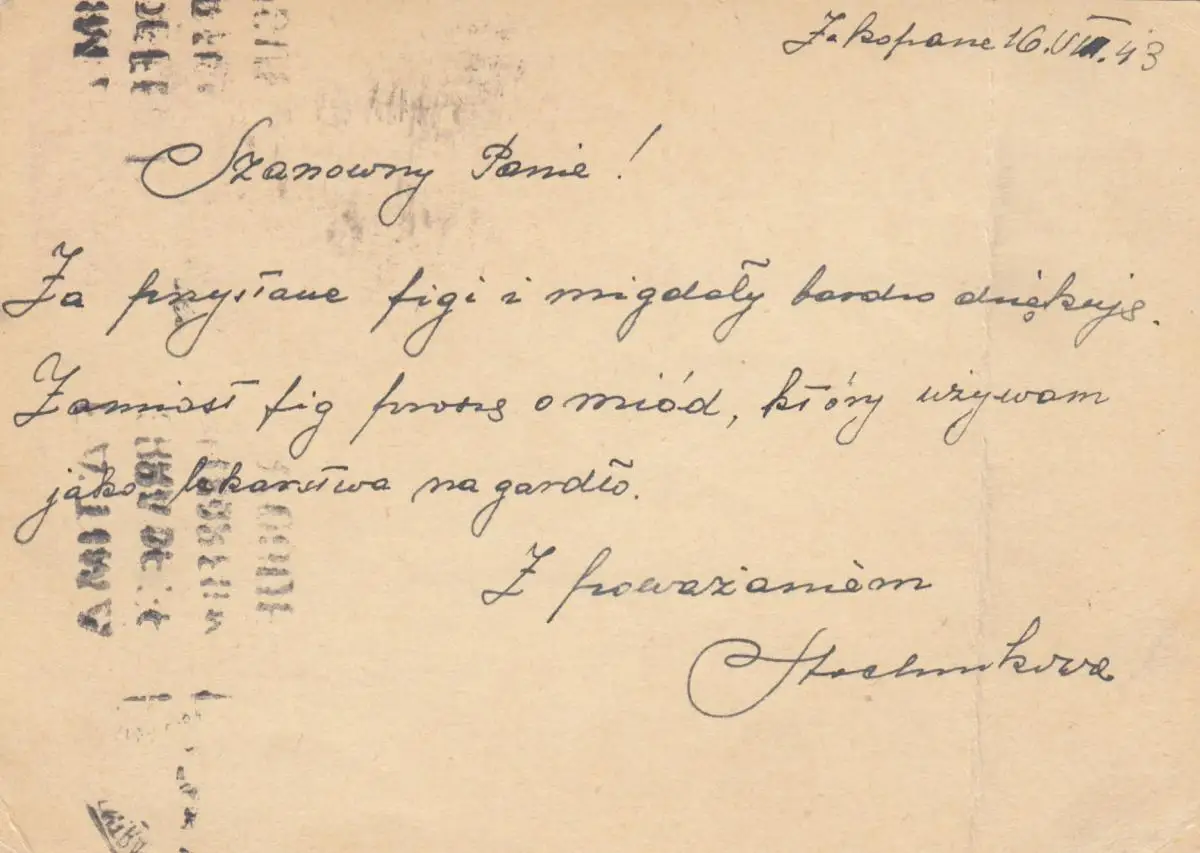 Zakopane 16.VIII.43
Szanowny Panie!
Za przysłane figi i migdały bardzo dziękuję.
Zamiast fig proszę o miód, który używam
jako lekarstwa na gardło.
Z poważaniem
AMITA